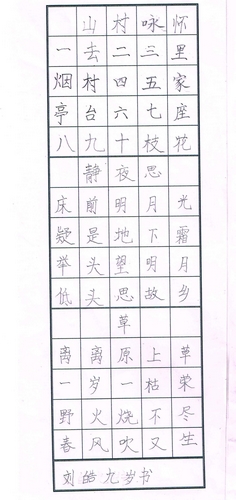 山村咏怀
一去二三里
烟村四五家
亭台六七座
八九十枝花
静夜思
床前明月光
疑是地下霜
举头望明月
低头思故乡
草
离离原上草
一岁一枯荣
野火烧不尽
春风吹又生
刘皓九岁书